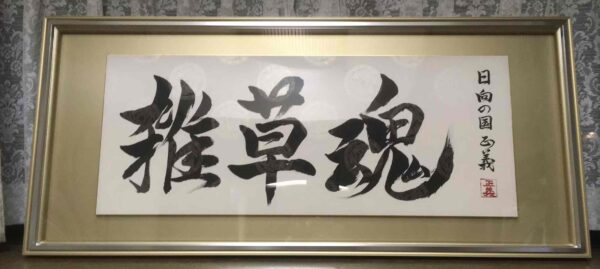 雑草魂
日向の国 正義
正義